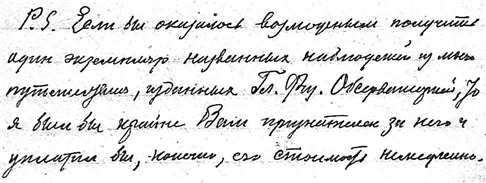 P.S. Если бы оказалось возможным получить
один экземпляр названных наблюдений из мест
путешествий, изданных Гл. Физ. Обсерваторией, то
я был бы крайне Вам признателен за него и
уплатил бы, конечно, его стоимость немедленно.